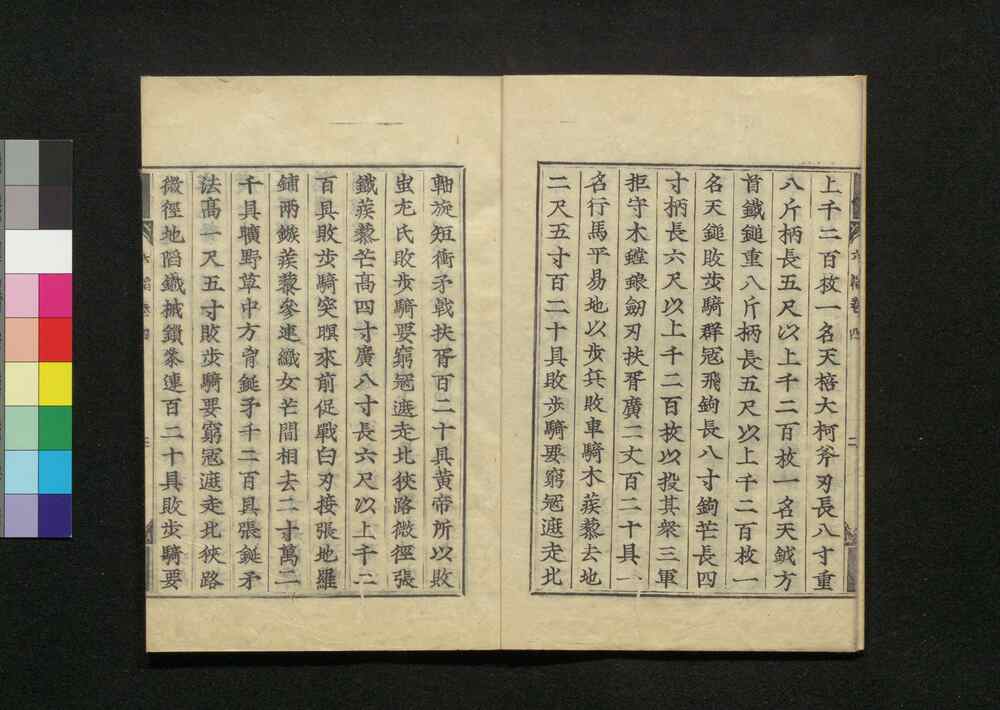 上千二百枚一名天棓大柯斧刃長八寸重
八斤柄長五尺以上千二百枚一名天鉞方
首鐵鎚重八斤柄長五尺以上千二百枚一
名天鎚敗步騎群冦飛鉤長八寸鉤芒長四
寸柄長六尺以上千二百枚以投其衆三軍
拒守木螳蜋劒刃扶胥廣二丈百二十具一
名行馬平易地以步兵敗車騎木蒺藜去地
二尺五寸百二十具敗步騎要窮冦遮走北
軸旋短衝矛戟扶胥百二十具黃帝所以敗
蚩尤氏敗步騎要窮冦遮走北狹路微徑張
鐵蒺藜芒高四寸廣八寸長六尺以上千二
百具敗步騎突暝來前促戰白刃接張地羅
鋪兩鏃蒺藜參連織女芒間相去二寸萬二
千具曠野草中方胷鋋矛千二百具張鋋矛
法高一尺五寸敗步騎要窮冦遮走北狹路
微徑地陷鐵械鎖叅連百二十具敗步騎要
六韜卷四